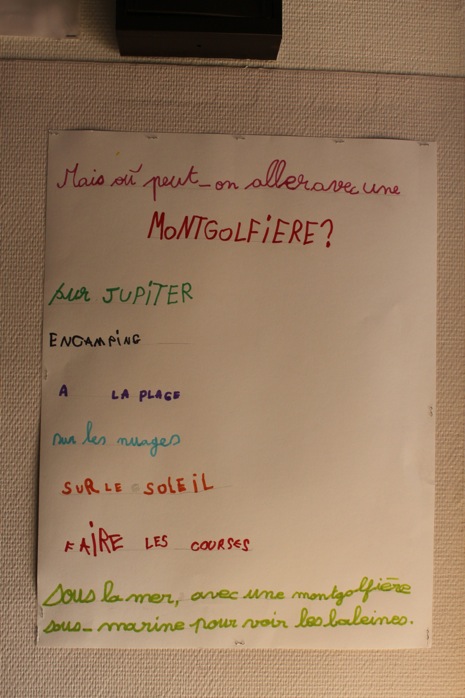 Mais où peut-on aller avec une
MONTGOLFIERE?
sur JUPITER
EN CAMPING
A LA PLAGE
sur les nuages
SUR LE SOLEIL
FAIRE LES COURSES
Sous la mer, avec une montgolfière
sous-marine pour voir les baleines.